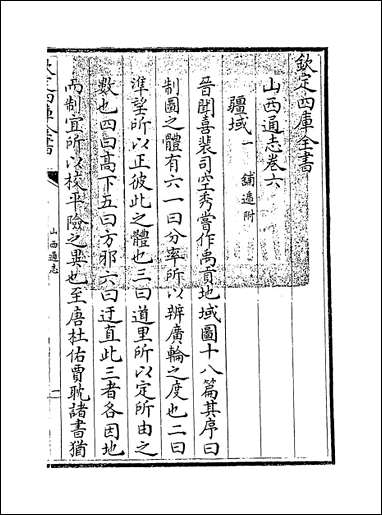 欽定四庫全書
山西通志卷六
疆域一 鋪遞附
晉聞喜裴司空秀嘗作禹貢地域圖十八篇其序曰
制圖之體有六一曰分率所以辨廣輪之度也二曰
準望所以正彼此之體也三曰道里所以定所由之
數也四曰高下五曰方邪六曰迂直此三者各因地
而制宜所以校平險之異也至唐杜佑賈耽諸書猶
欽定四庫全書
山西通志
一